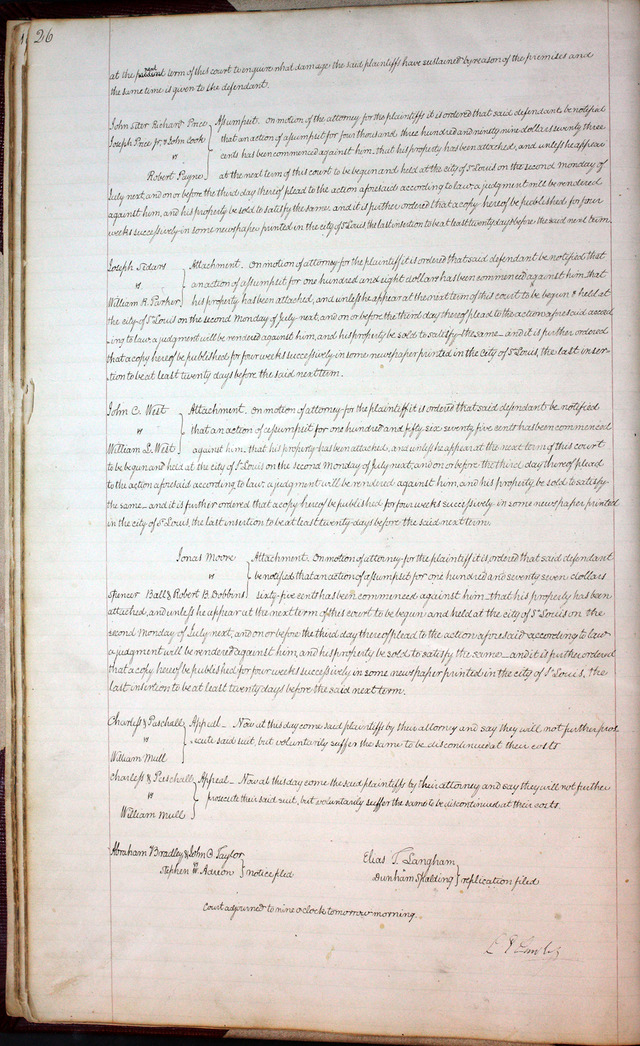 26
at the next term of this court to enquire what damage the said plaintiffs have sustained by reason of the premises and
the same time is given to the defendant.
John Siter Richard Price } Assumpsit. On motion of the attorney for the plaintiffs it is ordered that said defendant be notified
Joseph Price Jr. & John Cook } that an action of assumpsit for four thousand three hundred and ninety nine dollars seventy three
vs } cents has been commenced against him, that his property has been attached, and unless he appear
Robert Payne } at the next term of this court to be begun and held at the city of St Louis on the second Monday of
July next, and on or before the third day thereof plead to the action aforesaid according to law a judgment will be rendered
against him, and his property be sold to satisfy the same and it is further ordered that a copy hereof be published for four
weeks successively in some newspaper printed in the city of St Louis the last insertion to be at least twenty days before the said next term.
Joseph } Attachment. On motion of attorney for the plaintiff it is ordered that said defendant be notified that
vs } an action of assumpsit for one hundred and eight dollars has been commenced against him that
William R. Parker } his property has been attached, and unless he appear at the next term of this court to be begun & held at
the city of St Louis on the second Monday of July next, and on or before the third day thereof plead to the action aforesaid accord
-ing to law a judgment will be rendered against him, and his property be sold to satisfy the same and it is further ordered
that a copy hereof be published for four weeks successively in some newspaper printed in the City of St Louis, the last inser-
tion to be at least twenty days before the said next term.
John C. West } Attachment. On motion of attorney for the plaintiff it is ordered that said defendant be notified
vs } that an action of assumpsit for one hundred and fifty six seventy five cents has been commenced
William L. West } against him, that his property has been attached, and unless he appear at the next term of this court
to be begun and held at the city of St Louis on the second Monday of July next, and on or before the third day thereof plead
to the action aforesaid according to law a judgment will be rendered against him, and his property be sold to satisfy
the same and it is further ordered that a copy hereof be published for four weeks successively in some newspaper printed
in the city of St Louis, the last insertion to be at least twenty days before the said next term.
Jonas Moore } Attachment. On motion of attorney for the plaintiff it is ordered that said defendant
vs } be notified that an action of assumpsit for one hundred and seventy seven dollars
Spencer Ball & Robert B. Dobbins } sixty five cents has been commenced against him that his property has been
attached, and unless he appear at the next term of this court to be begun and held at the city of St Louis on the
second Monday of July next, and on or before the third day thereof plead to the action aforesaid according to law
a judgment will be rendered against him, and his property be sold to satisfy the same and it is further ordered
that a copy hereof be published for four weeks successively in some newspaper printed in the city of St Louis, the
last insertion to be at least twenty days before the said next term.
Charless & Paschall } Appeal - Now at this day come said plaintiffs by their attorney and say they will not further pros
vs } ecute said suit, but voluntarily suffer the same to be discontinued at their costs
William Mull
Charless & Paschall } Appeal - Now at this day come the said plaintiffs by their attorney and say they will not further
vs } prosecute their said suit, but voluntarily suffer the same to be discontinued at their costs.
William Mull
Abraham Bradley & John C. Taylor
Stephen W. } notice filed
Elias T. Langham
vs
Dunham Spalding } replication filed
Court adjourned to nine o'clock tomorrow morning.